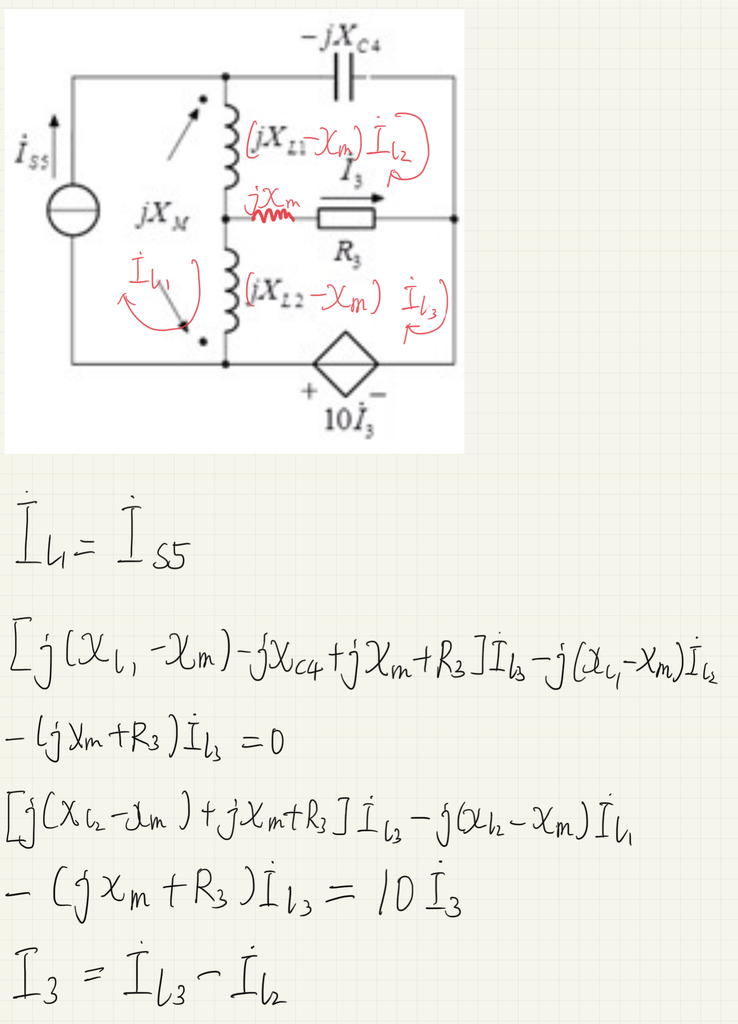 -jX_C4
İ_S5
(jX_L1-x_m) İ_l2
İ_3
jx_m
jX_M
R_3
İ_l1
(jX_L2-x_m) İ_l3
+ -
10İ_3
İ_l1 = İ_S5
[j(x_l1-x_m)-jx_C4+jx_m+R_3]İ_l3-j(x_l1-x_m)İ_l2
-(jx_m+R_3)İ_l3=0
[j(x_l2-x_m)+jx_m+R_3]İ_l3-j(x_l2-x_m)İ_l1
-(jx_m+R_3)İ_l3=10İ_3
I_3=İ_l3-İ_l2